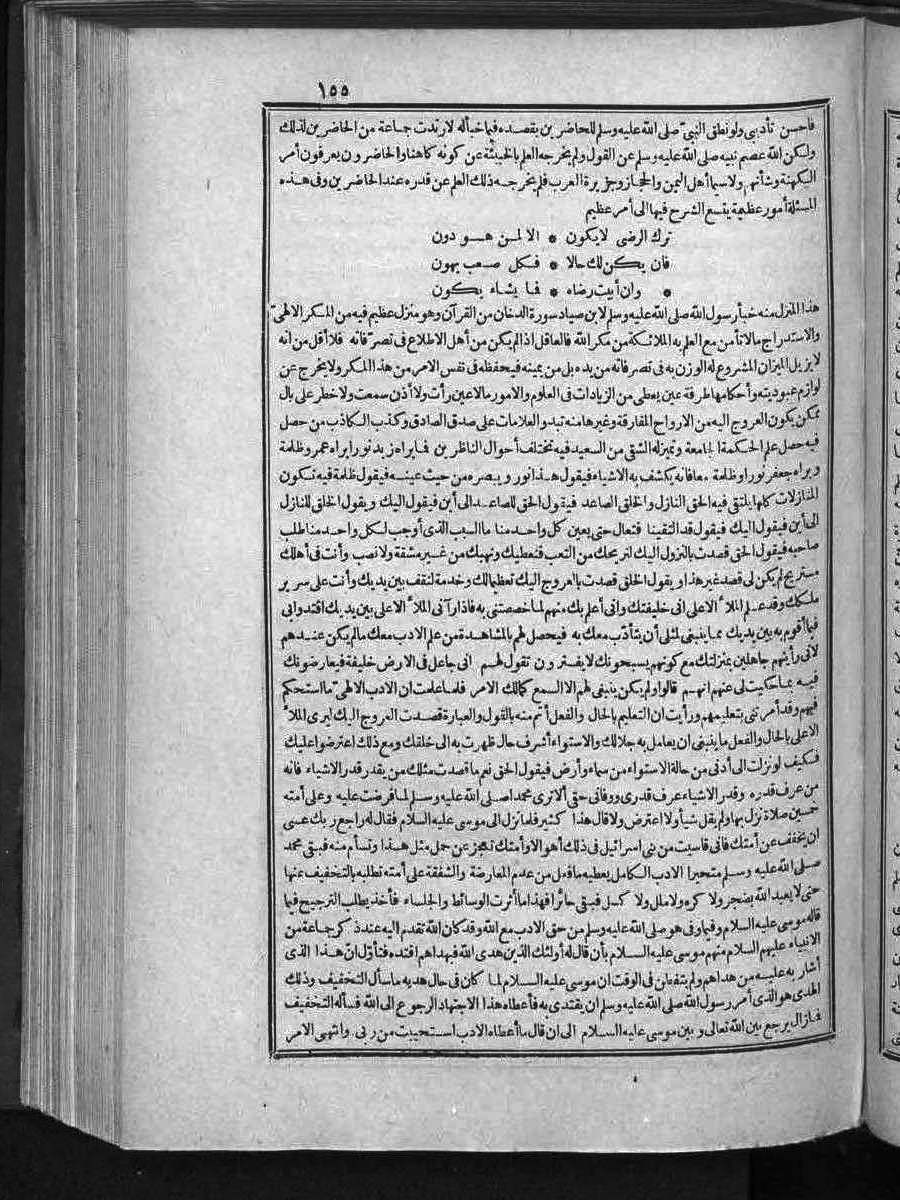 ١٥٥
فاحسن تأدبى ولو نطق النبى صلى الله عليه وسلم للحاضرين بقصده فيما خبأله لارتدت جماعة من الحاضرين لذلك
ولكن الله عصم نبيه صلى الله عليه وسلم عن القول ولم يخرجه العلم بالخبيئة عن كونه كاهنا والحاضرون يعرفون أمر
الكهنة وشأنهم ولا سيما أهل اليمن والحجاز وجزيرة العرب فلم يخرجه ذلك العلم عن قدره عند الحاضرين وفى هذه
المسئلة أمور عظيمة يتسع الشرح فيها الى أمر عظيم
ترك الرضى لا يكون * الا لمن هو دون
فان يكن لك حالا * فكل صعب يهون
* وان أبيت رضاه * فما يشاء يكون
هذا المنزل منه خبأ رسول الله صلى الله عليه وسلم لابن صياد سورة الدخان من القرآن وهو منزل عظيم فيه من المكر الالهى
والاستدراج مالا تأمن مع العلم به الملائكة من مكر الله فالعاقل اذا لم يكن من أهل الاطلاع فى تصرفاته فلا أقل من انه
لا يزيل الميزان المشروع له الوزن به فى تصرفاته من يده بل من يمينه فيحفظه فى نفس الامر من هذا المكر ولا يخرج عن
لوازم عبوديته وأحكامها طرفة عين يعطى من الزيادات فى العلوم والامور مالا عين رأت ولا أذن سمعت ولا خطر على بال
تمكن يكون العروج اليه من الارواح المفارقة وغيرها منه تبدو العلامات على صدق الصادق وكذب الكاذب من حصل
فيه حصل علم الحكمة الجامعة وتميز له الشقى من السعيد فيه تختلف أحوال الناظرين فما يراه زيد نورا يراه عمرو ظلمة
ويراه جعفر نورا وظلمة معا فانه يكشف به الاشياء فيقول هذا نور ويبصره من حيث عينه فيقول ظلمة فيه تكون
المنازلات كلها يلتقى فيه الحق النازل والخلق الصاعد فيقول الحق للصاعد الى أين فيقول اليك ويقول الخلق للنازل
الى أين فيقول اليك فيقول قد التقينا فتعال حتى يعين كل واحد منا ما السبب الذى أوجب لكل واحد منا طلب
صاحبه فيقول الحق قصدت بالنزول اليك لنريحك من التعب فنعطيك ونهبك من غير مشقة ولا نصب وأنت فى أهلك
مستريح لم يكن لى قصد غير هذا ويقول الخلق قصدت بالعروج اليك تعظيما لك وخدمة لنقف بين يديك وأنت على سرير
ملكك وقد علم الملأ الاعلى انى خليفتك وانى أعلم بك منهم لما خصصتنى به فاذا رآنى الملأ الاعلى بين يديك اقتدوا بى
فيما أقوم به بين يديك مما ينبغى لمثلى أن يتأدب معك به فيحصل لهم بالمشاهدة من علم الادب معك ما لم يكن عندهم
لانى رأيتهم جاهلين بمنزلتك مع كونهم يسبحونك لا يفترون تقول لهم انى جاعل فى الارض خليفة فيعارضونك
فيه بما حكيت لى عنهم انهم قالوا ولم يكن ينبغى لهم الا السمع كمالك الامر فلما علمت ان الادب الالهى ما استحكم
فيهم وقد أمرتنى بتعليمهم ورأيت ان التعليم بالحال والفعل أتم منه بالقول والعبارة قصدت العروج اليك ليرى الملأ
الاعلى بالحال والفعل ما ينبغى ان يعامل به جلالك والاستواء أشرف حال ظهرت به الى خلقك ومع ذلك اعترضوا عليك
فكيف لو نزلت الى أدنى من حالة الاستواء من سماء وأرض فيقول الحق نعم ما قصدت مثلك من يقدر قدر الاشياء فانه
من عرف قدره وقدر الاشياء عرف قدرى ووفانى حقى ألا ترى محمدا صلى الله عليه وسلم لما فرضت عليه وعلى أمته
خمسين صلاة نزل بها ولم يقل شيأ ولا اعترض ولا قال هذا كثير فلما نزل الى موسى عليه السلام فقال له راجع ربك عسى
ان يخفف عن أمتك فانى قاسيت من بنى اسرائيل فى ذلك أهوالا وأمتك تعجز عن حمل مثل هذا وتسأم منه فبقى محمد
صلى الله عليه وسلم متحيرا الادب الكامل يعطيه ما فعل من عدم المعارضة والشفقة على أمته تطلبه بالتخفيف عنها
حتى لا يعبد الله بضجر ولا كره ولا ملل ولا كسل فبقى حائرا فهذا ما أثرت الوسائط والجلساء فأخذ يطلب الترجيح فيما
قاله موسى عليه السلام وفيما وفى هو صلى الله عليه وسلم من حق الادب مع الله وقد كان الله تقدم اليه عند ذكر جماعة من
الانبياء عليهم السلام منهم موسى عليه السلام بأن قال له أولئك الذين هدى الله فبهداهم اقتده فتأول ان هذا الذى
أشار به عليه من هداهم ولم يتفطن فى الوقت ان موسى عليه السلام لما كان فى حال هديه ما سأل التخفيف وذلك
الهدى هو الذى أمر رسول الله صلى الله عليه وسلم ان يقتدى به فأعطاه هذا الاجتهاد الرجوع الى الله فسأله التخفيف
فما زال يرجع بين الله تعالى وبين موسى عليه السلام الى ان قال ما أعطاه الادب استحييت من ربى وانتهى الامر